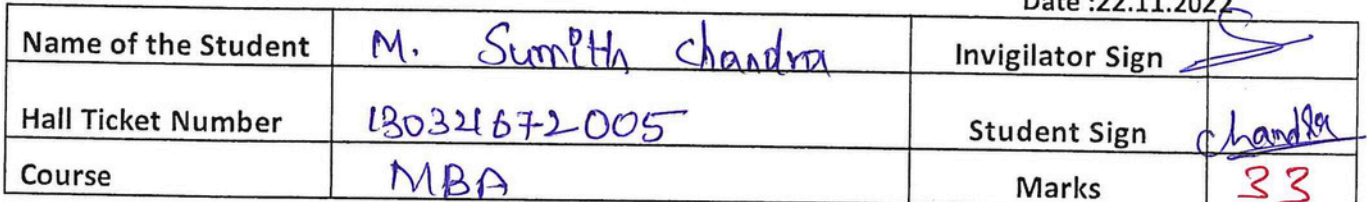 Date :22.11.2022
Name of the Student M. Sumith Chandra Invigilator Sign
Hall Ticket Number 130321672005 Student Sign Chandra
Course MBA Marks 33